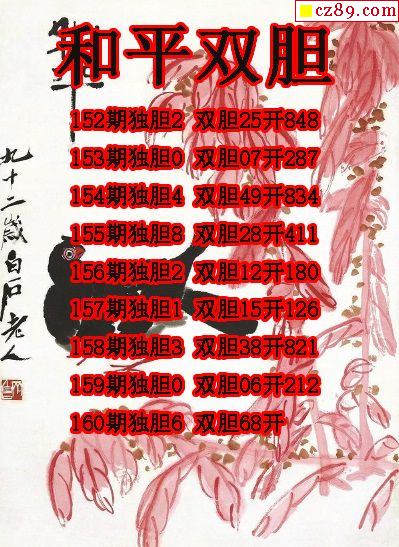 cz89.com
和平双胆
152期独胆2 双胆25开848
153期独胆0 双胆07开287
154期独胆4 双胆49开834
155期独胆8 双胆28开411
156期独胆2 双胆12开180
157期独胆1 双胆15开126
158期独胆3 双胆38开821
159期独胆0 双胆06开212
160期独胆6 双胆68开
九十二岁白石老人